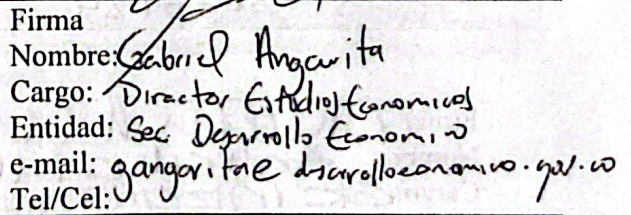 Firma
Nombre: Gabriel Angarita
Cargo: Director Estudios Economicos
Entidad: Sec Desarrollo Economico
e-mail: gangarita@desarrolloeconomico.gov.co
Tel/Cel: